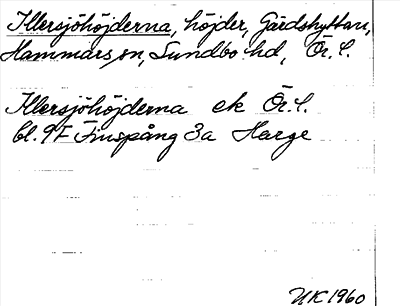 Illersjöhöjderna, höjder, Gärdshyttan,
Hammars sn, Sundbo hd, Ör. l.
Illersjöhöjderna ek Ör. l.
bl. 9F Finspång 3a Harge
UK 1960